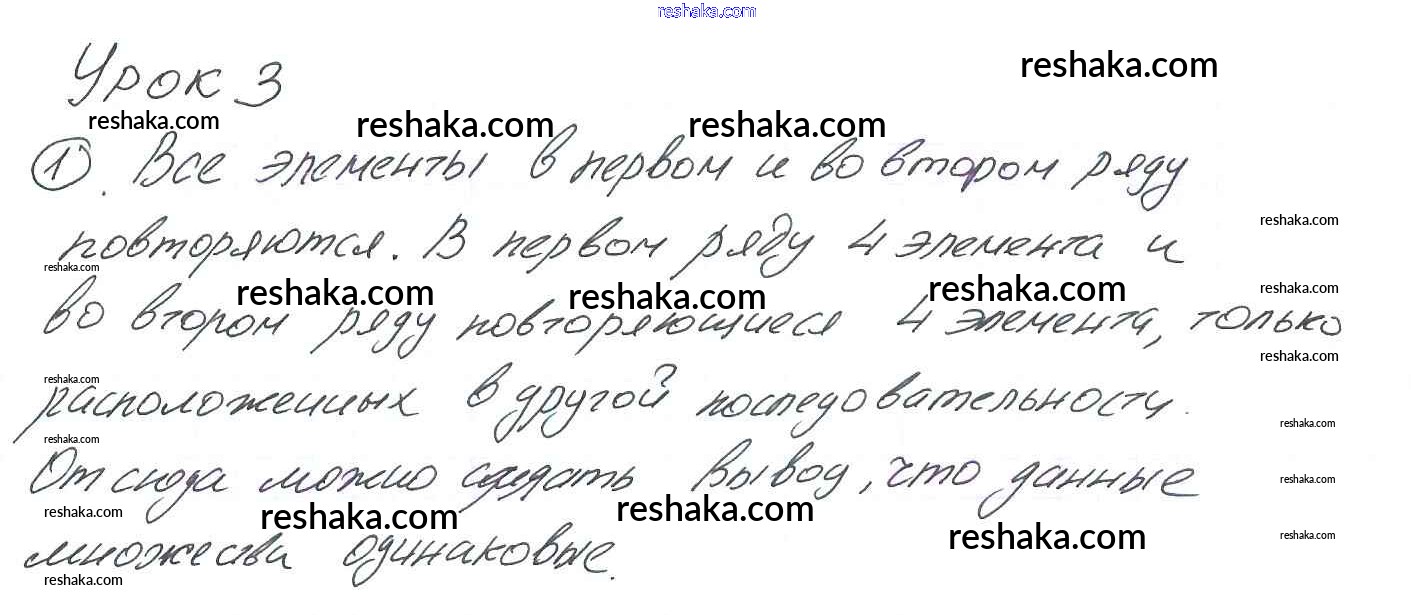 reshaka.com
Урок 3
reshaka.com
reshaka.com
reshaka.com
reshaka.com
1). Все элементы в первом и во втором ряду
reshaka.com
повторяются. В первом ряду 4 элемента и
reshaka.com
reshaka.com
reshaka.com
reshaka.com
reshaka.com
во втором ряду повторяющиеся 4 элемента, только
reshaka.com
reshaka.com
расположенных в другой последовательности.
reshaka.com
reshaka.com
Отсюда можно сделать вывод, что данные
reshaka.com
reshaka.com
reshaka.com
reshaka.com
reshaka.com
множества одинаковые.
reshaka.com
reshaka.com